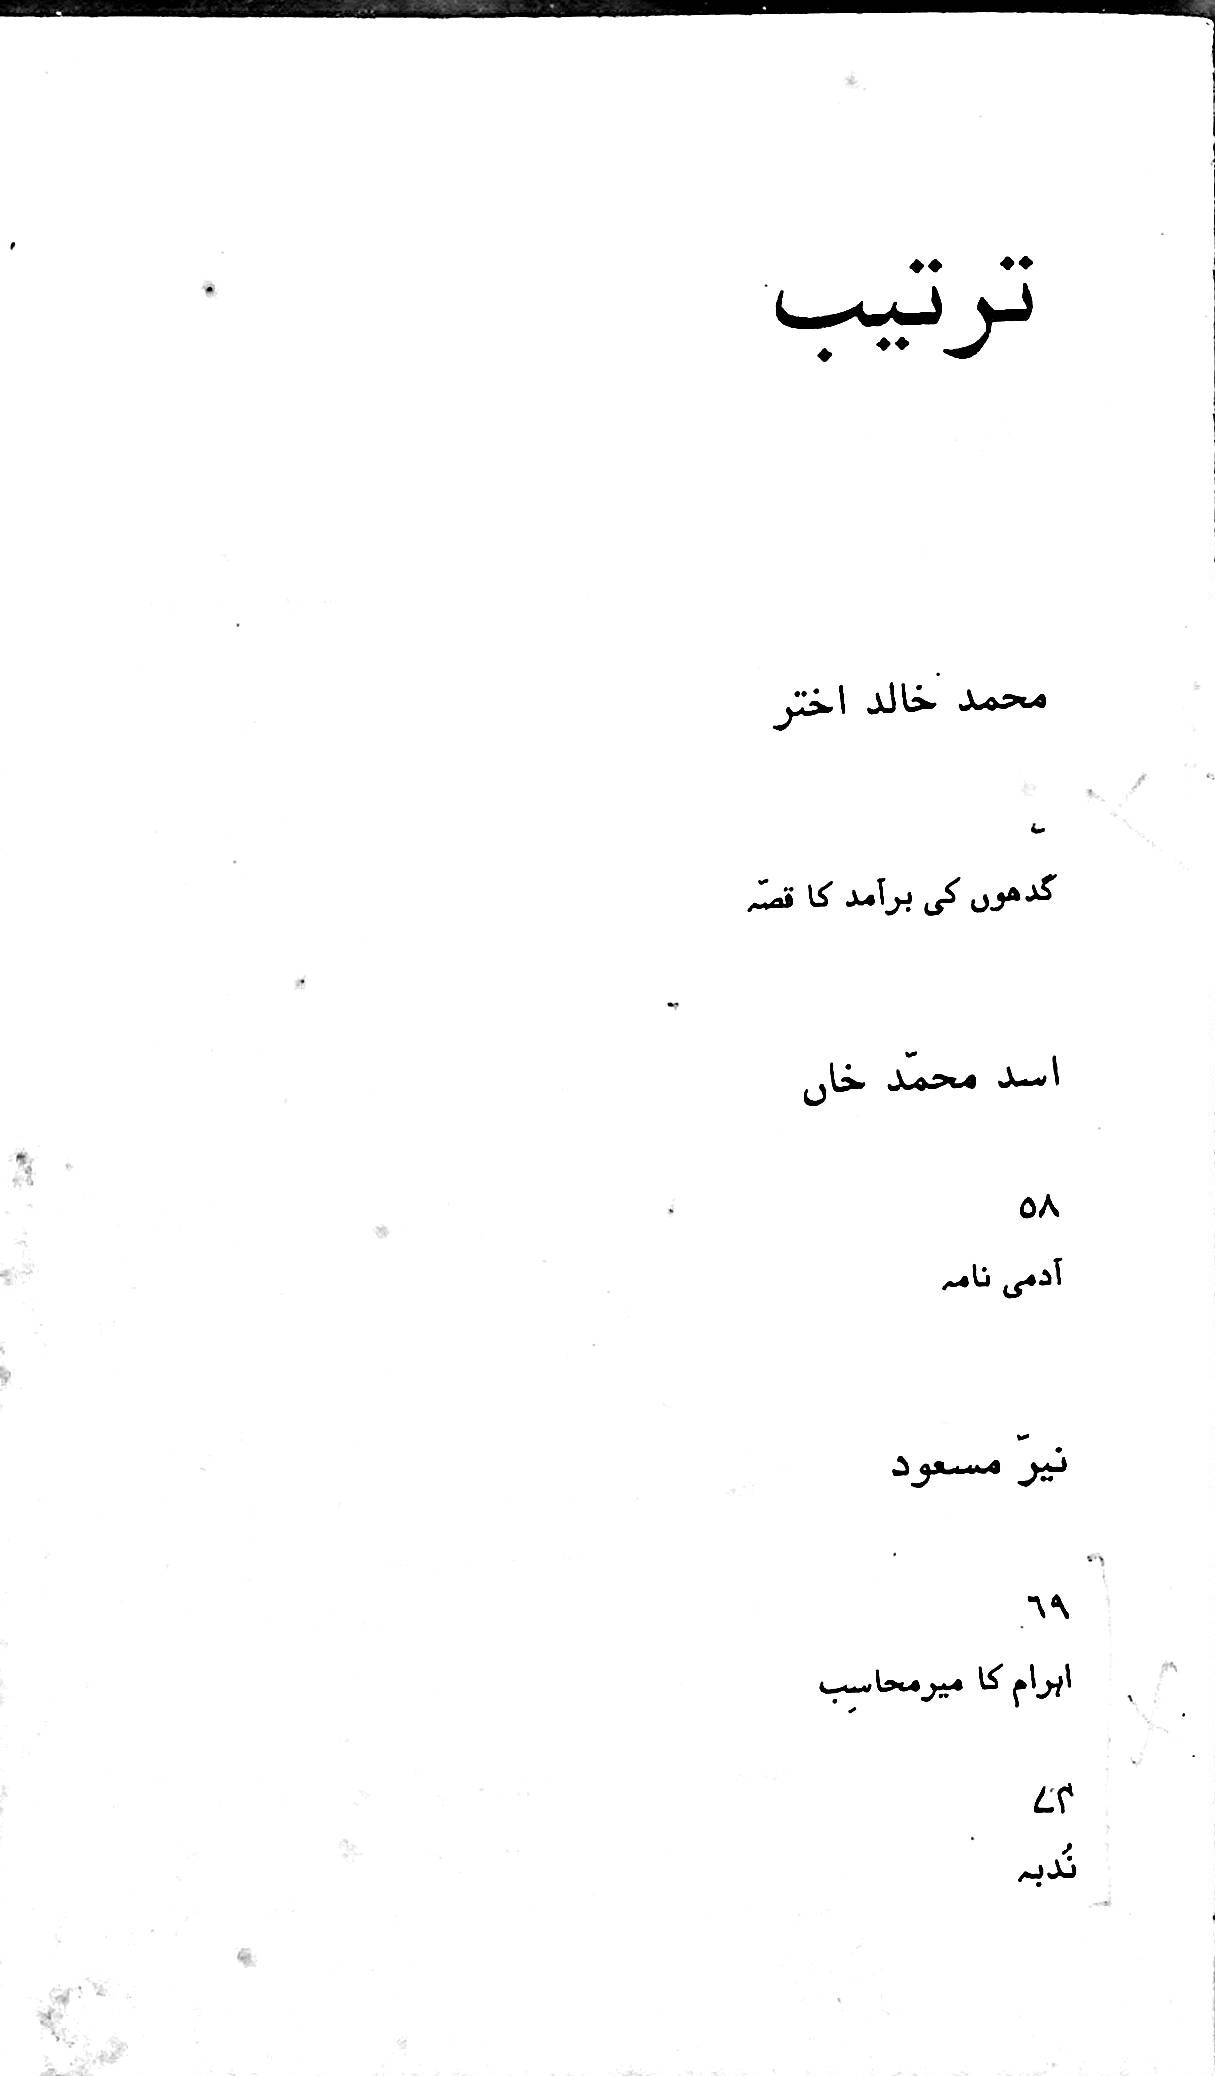 ترتیب
محمد خالد اختر
گدھوں کی برآمد کا قصّہ
اسد محمّد خاں
۵۸
آدمی نامہ
نیّر مسعود
٦٩
اہرام کا میرمحاسِب
۷۴
نُدبہ